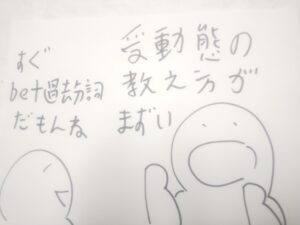 受動態の
教え方が
まずい
すぐ
be+過去分詞
だもんね